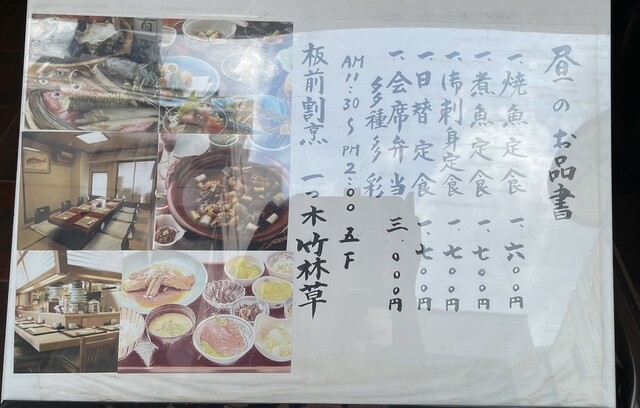 昼のお品書
一、焼魚定食 一、六〇〇円
一、煮魚定食 一、七〇〇円
一、御刺身定食 一、七〇〇円
一、日替定食 一、七〇〇円
一、会席弁当 三、〇〇〇円
多種多彩
AM11:30〜PM2:00 五F
板前割烹 一ッ木 竹林草